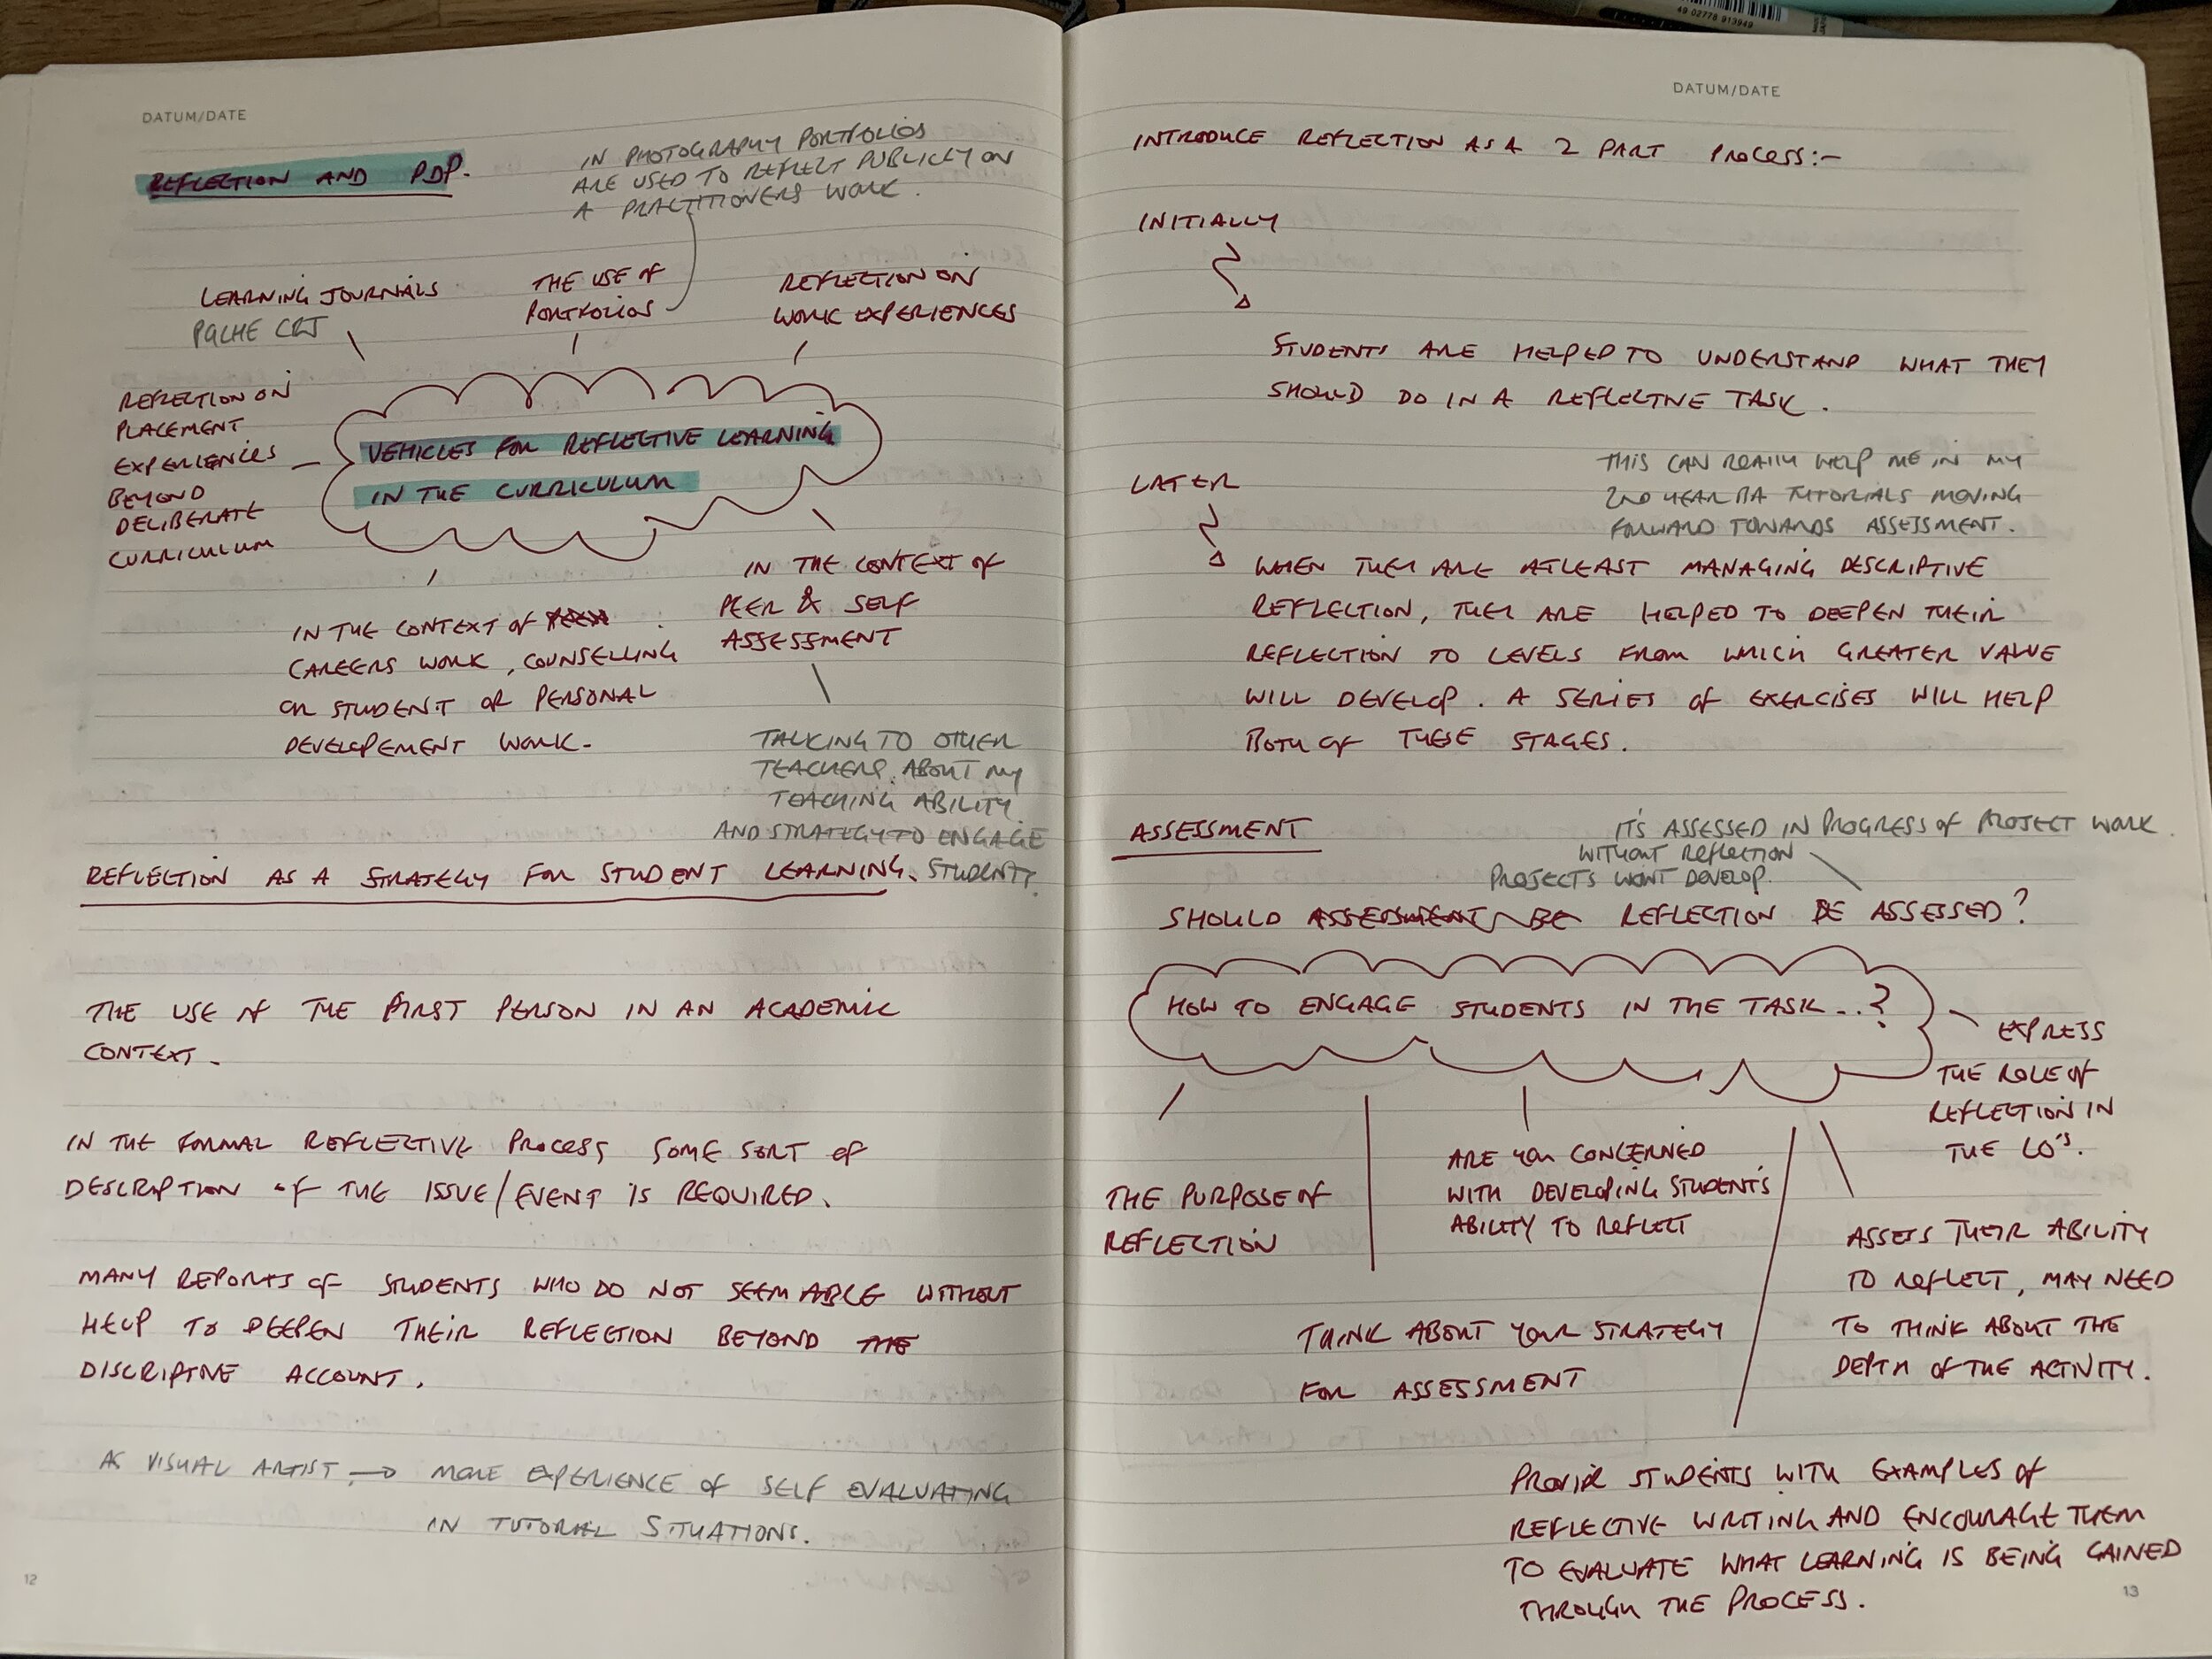 49 02778 913949
DATUM/DATE
REFLECTION AND PDP.
IN PHOTOGRAPHY PORTFOLIOS
ARE USED TO REFLECT PUBLICLY ON
A PRACTITIONERS WORK.
LEARNING JOURNALS
PGCHE CRJ
THE USE OF
PORTFOLIOS
REFLECTION ON
WORK EXPERIENCES
REFLECTION ON
PLACEMENT
EXPERIENCES
BEYOND
DELIBERATE
CURRICULUM
VEHICLES FOR REFLECTIVE LEARNING
IN THE CURRICULUM
IN THE CONTEXT OF
CAREERS WORK, COUNSELLING
OR STUDENT OR PERSONAL
DEVELOPEMENT WORK.
IN THE CONTEXT OF
PEER & SELF
ASSESSMENT
TALKING TO OTHER
TEACHERS ABOUT MY
TEACHING ABILITY
AND STRATEGY TO ENGAGE
STUDENTS.
REFLECTION AS A STRATEGY FOR STUDENT LEARNING.
THE USE OF THE FIRST PERSON IN AN ACADEMIC
CONTEXT.
IN THE FORMAL REFLECTIVE PROCESS SOME SORT OF
DESCRIPTION OF THE ISSUE/EVENT IS REQUIRED.
MANY REPORTS OF STUDENTS WHO DO NOT SEEM ABLE WITHOUT
HELP TO DEEPEN THEIR REFLECTION BEYOND THE
DISCRIPTIVE ACCOUNT.
AS VISUAL ARTIST → MORE EXPERIENCE OF SELF EVALUATING
IN TUTORIAL SITUATIONS.
12
DATUM/DATE
INTRODUCE REFLECTION AS A 2 PART PROCESS:-
INITIALLY
STUDENTS ARE HELPED TO UNDERSTAND WHAT THEY
SHOULD DO IN A REFLECTIVE TASK.
THIS CAN REALLY HELP ME IN MY
2ND YEAR BA TUTORIALS MOVING
FORWARD TOWARDS ASSESSMENT.
LATER
WHEN THEY ARE ATLEAST MANAGING DESCRIPTIVE
REFLECTION, THEY ARE HELPED TO DEEPEN THEIR
REFLECTION TO LEVELS FROM WHICH GREATER VALUE
WILL DEVELOP. A SERIES OF EXERCISES WILL HELP
BOTH OF THESE STAGES.
ASSESSMENT
IT'S ASSESSED IN PROGRESS OF PROJECT WORK.
WITHOUT REFLECTION
PROJECTS WONT DEVELOP.
SHOULD ASSESSMENT BE REFLECTION BE ASSESSED?
HOW TO ENGAGE STUDENTS IN THE TASK...?
EXPRESS
THE ROLE OF
REFLECTION IN
THE LO'S.
THE PURPOSE OF
REFLECTION
ARE YOU CONCERNED
WITH DEVELOPING STUDENTS
ABILITY TO REFLECT
ASSESS THEIR ABILITY
TO REFLECT, MAY NEED
TO THINK ABOUT THE
DEPTH OF THE ACTIVITY.
THINK ABOUT YOUR STRATEGY
FOR ASSESSMENT
PROVIDE STUDENTS WITH EXAMPLES OF
REFLECTIVE WRITING AND ENCOURAGE THEM
TO EVALUATE WHAT LEARNING IS BEING GAINED
THROUGH THE PROCESS.
13